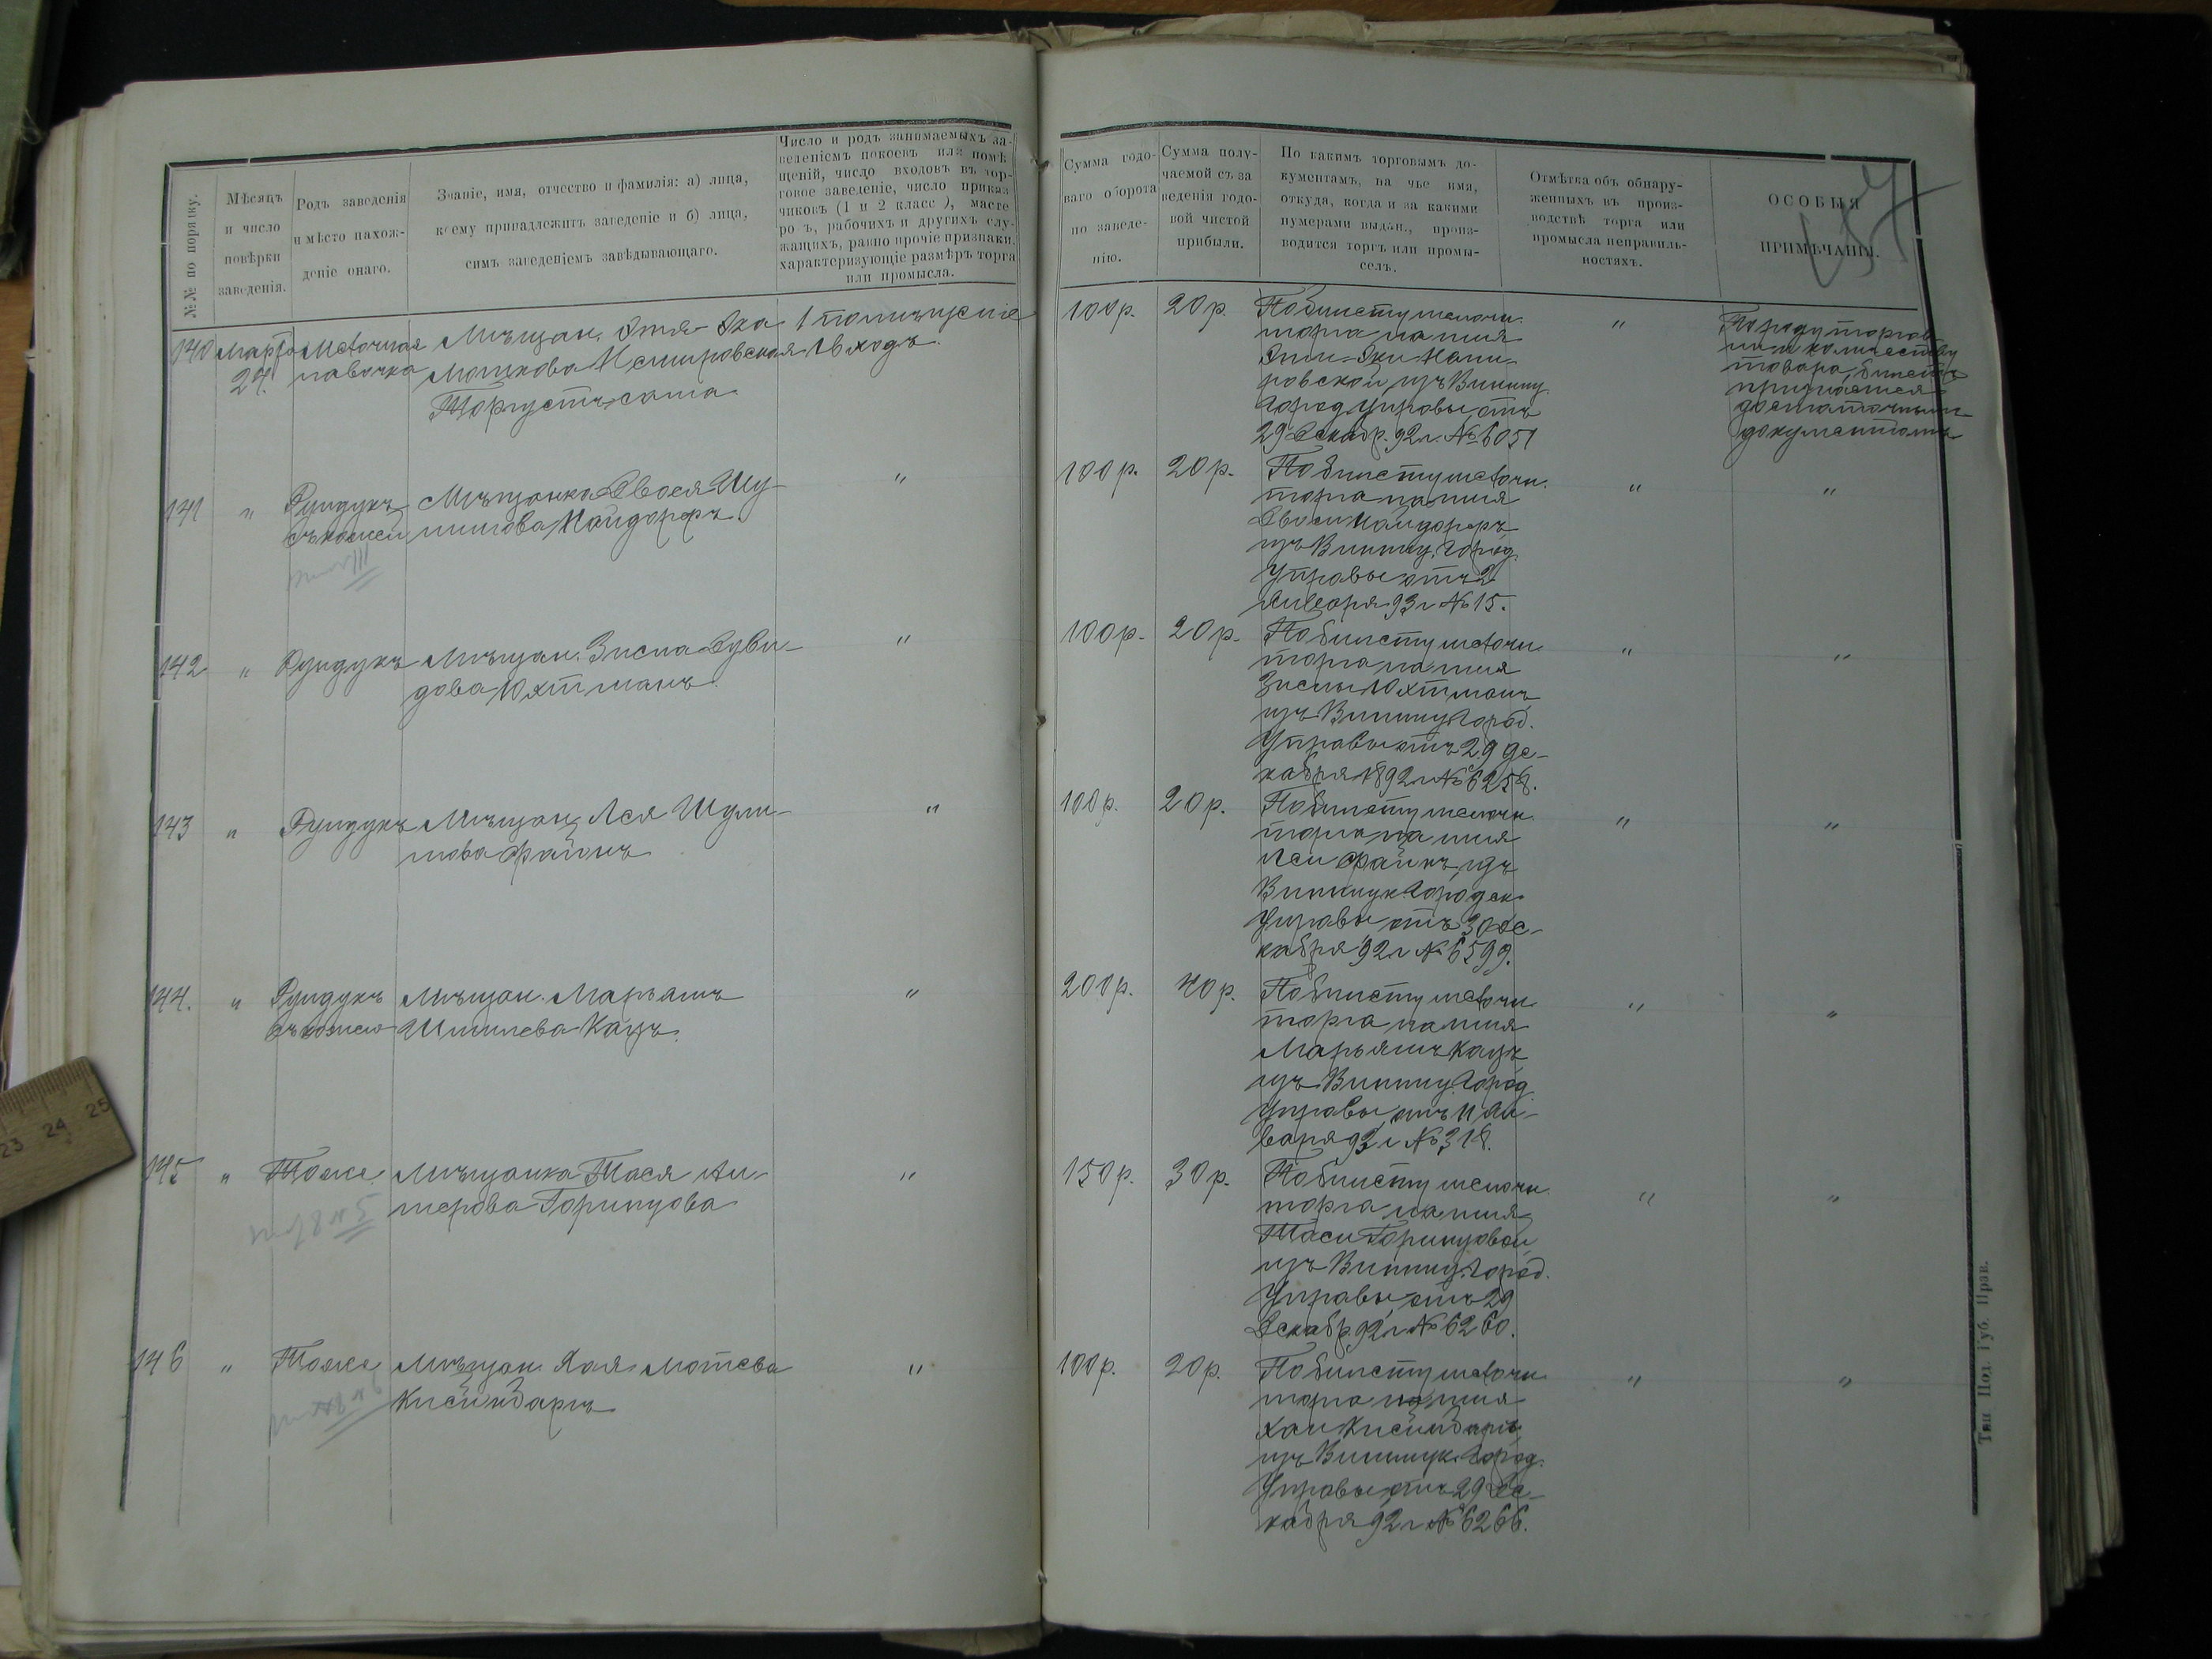 №№ по порядку.
Мѣсяцъ
и число
повѣрки
заведенія.
Родъ заведенія
и мѣсто нахож-
деніе онаго.
Званіе, имя, отчество и фамилія: а) лица,
коему принадлежитъ заведеніе и б) лица,
симъ заведеніемъ завѣдывающаго.
Число и родъ занимаемыхъ за-
веденіемъ покоевъ или помѣ
щеній, число входовъ въ тор-
говое заведеніе, число приказ
чиковъ (1 и 2 класс ), масте
ро ъ, рабочихъ и другихъ слу-
жащихъ, равно прочіе признаки,
характеризующіе размѣръ торга
или промысла.
Сумма годо-
ваго оборота
по заведе-
нію.
Сумма полу-
чаемой съ за
веденія годо-
вой чистой
прибыли.
По какимъ торговымъ до-
кументамъ, на чье имя,
откуда, когда и за какими
нумерами выдан., произ-
водится торгъ или промы-
селъ.
Отмѣтка объ обнару-
женныхъ въ произ-
водствѣ торга или
промысла неправиль-
ностяхъ.
ОСОБЫЯ
ПРИМѢЧАНІЯ.
140 Марта Мелочная Мѣщан. Этя-Эка 1 помѣщеніе
24. лавочка Мошкова Немировская 1 входъ.
Торгуетъ сама
100р. 20р. По билету мелочн.
торга на имя
Эти-Эки Неми-
ровской, изъ Винниц.
Город. Управы отъ
29 Декабр. 92 г. № 6051
"
По роду торгов-
ли и количеству
товара, билетъ
признается
достаточнымъ
документомъ
141 " Рундукъ Мѣщанка Двося Шу-
съ кожей лимова Найдорфъ "
100р. 20р. По билету мелочн.
торга на имя
Двоси Найдорфъ
изъ Винниц. Город.
Управы отъ 2
Января 93 г № 15.
" "
142 " Рундукъ Мѣщан. Зисла Дуви-
дова Юхтманъ. "
100р. 20р. По билету мелочн.
торга на имя
Зислы Юхтманъ
изъ Винниц. Город.
Управы отъ 29 де-
кабря 1892 г № 6258.
" "
143 " Рундукъ Мѣщан. Лея Шули-
мова Файнъ "
100р. 20р. По билету мелочн.
торга на имя
Леи Файнъ, изъ
Винницк. Городск.
Управы отъ 30 де-
кабря 92 г № 6599.
" "
144. " Рундукъ Мѣщан. Марьямъ
съ кожею Шмилева Кацъ. "
200р. 40р. По билету мелочн.
торга на имя
Марьямъ Кацъ
изъ Винниц. Город.
Управы отъ 11 Ян-
варя 93 г № 318.
" "
145 " Тоже Мѣщанка Тася Ан-
шерова Горинцова "
150р. 30р. По билету мелочн.
торга на имя
Таси Горинцовой
изъ Винниц. Город.
Управы отъ 29
Декабр. 92 г № 6260.
" "
146 " Тоже Мѣщан. Хая Мотева
"
100р. 20р. По билету мелочн.
торга на имя
Хаи
изъ Винницк. Город.
Управы отъ 29 де-
кабря 92 г № 6266.
" "
Тип. Под. Губ. Прав.
23 24 25